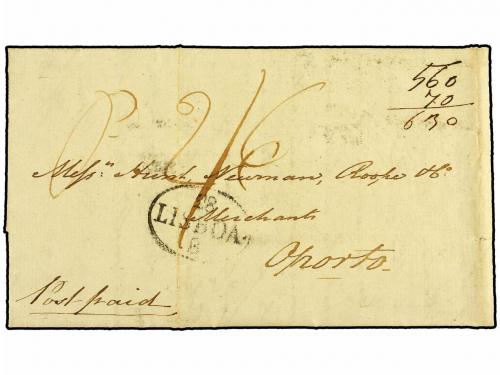 560
70
630
P 2/6
Messrs. Hunt, Newman, Roope & Co.
Merchants
28
LISBOA
8
Oporto.
Post paid